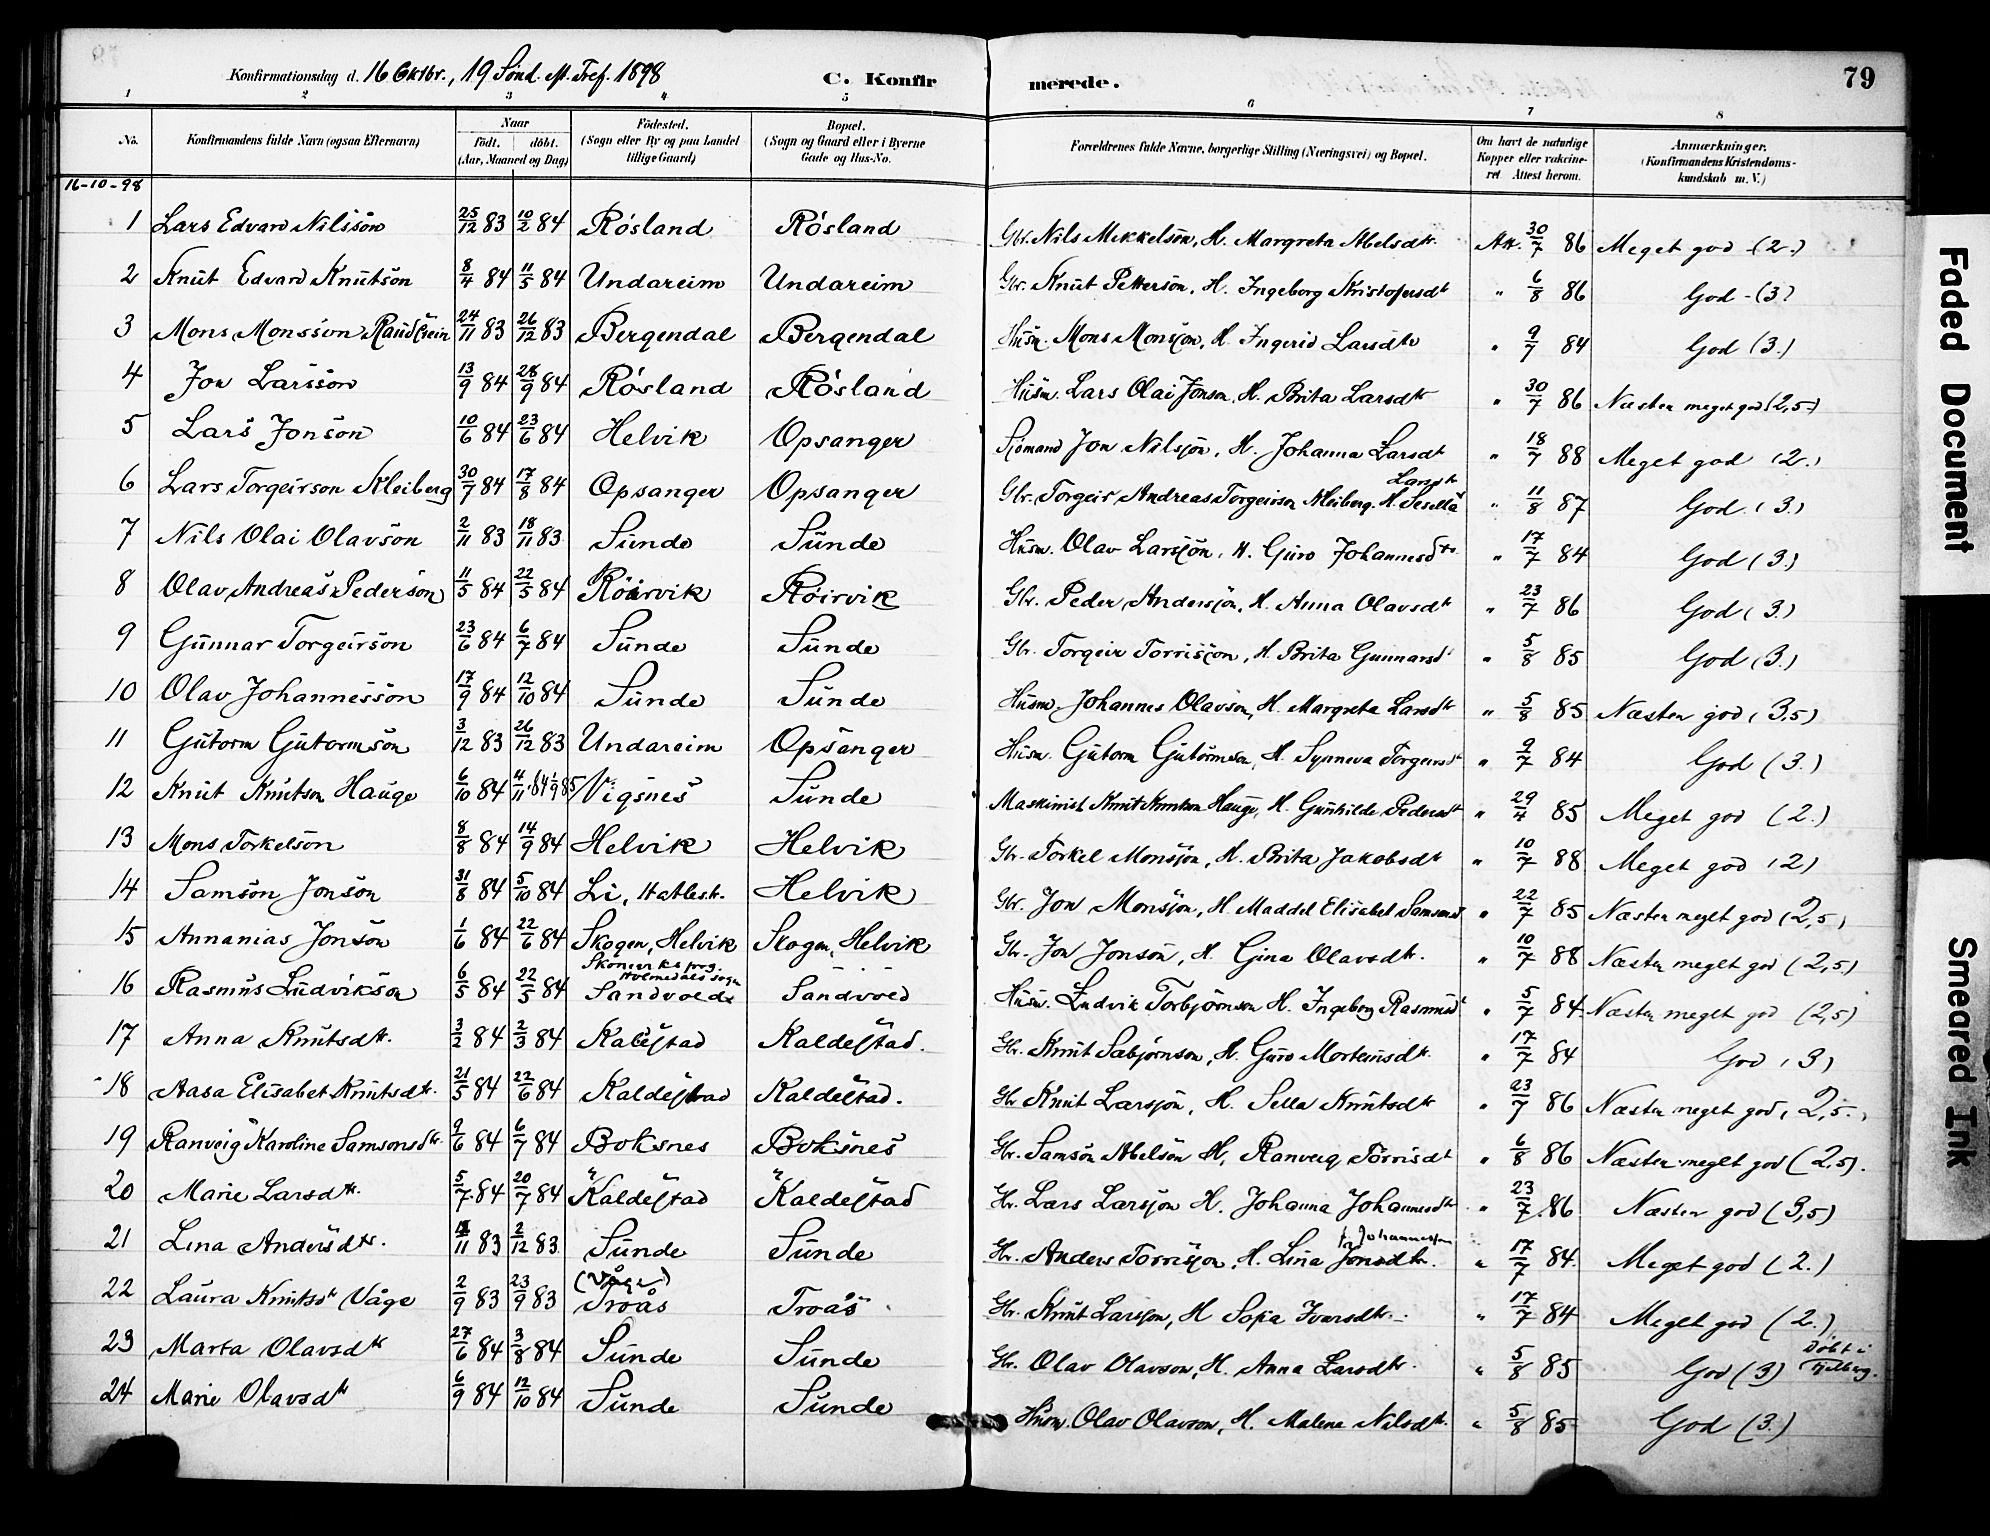 Konfirmationsdag d. 16 Oktbr., 19 Sönd. e. Tref. 1898 C. Konfirmerede. 79
1 2 3 4 5 6 7 8
No. Konfirmandens fulde Navn (ogsaa Efternavn) Naar födt. döbt. (Aar, Maaned og Dag) Födested. (Sogn eller By og paa Landet tillige Gaard) Bopæl. (Sogn og Gaard eller i Byerne Gade og Hus-No. Forældrenes fulde Navne, borgerlige Stilling (Næringsvei) og Bopæl. Om havt de naturlige Kopper eller vakcineret Attest herom. Anmærkninger. (Konfirmandens Kristendomskundskab m. V.)
16-10-98
1 Lars Edvard Nilsson 25/12 83 10/2 84 Rösland Rösland Gbr. Nils Mikkelsön, H. Margreta Abelsdtr. Att. 30/7 86 Meget god (2.)
2 Knut Edvard Knutson 8/4 84 11/5 84 Undareim Undareim Gbr. Knut Petterson, H. Ingeborg Kristofersdtr " 6/8 86 God (3)
3 Mons Monsson Raudstein 24/11 83 26/12 83 Bergendal Bergendal Husm. Mons Monsson, H. Ingerid Larsdtr " 9/7 84 God (3.)
4 Jon Larsson 13/9 84 28/9 84 Rösland Rösland Husm. Lars Olai Jonson, H. Brita Larsdtr " 30/7 86 Næsten meget god (2,5)
5 Lars Jonson 10/6 84 23/6 84 Helvik Opsanger Sjömand Jon Nilsson, H. Johanna Larsdt " 18/7 88 Meget god (2.)
6 Lars Torgeirson Kleiberg 30/7 84 17/8 84 Opsanger Opsanger Gbr. Torgeir Andreas Torgeirson Kleiberg. H. Sesella Larsdtr " 11/8 87 God (3.)
7 Nils Olai Olavson 2/11 83 18/11 83 Sunde Sunde Husm. Olav Larsson, H. Guro Johannesdtr " 17/7 84 God (3.)
8 Olav Andreas Pederson 11/5 84 22/5 84 Röirvik Röirvik Gbr. Peder Anderson, H. Anna Olavsdtr " 23/7 86 God (3.)
9 Gunnar Torgeirson 23/6 84 6/7 84 Sunde Sunde Gbr. Torgeir Torrisson, H. Brita Gunnarsd " 5/8 85 God (3.)
10 Olav Johannesson 17/9 84 12/10 84 Sunde Sunde Husm. Johannes Olavson, H. Margreta Larsdtr " 5/8 85 Næsten god (3,5)
11 Gutorm Gutormson 3/12 83 26/12 83 Undareim Opsanger Husm. Gutorm Gutormson, H. Synneva Torgeirsdt " 9/7 84 God (3.)
12 Knut Knutson Hauge 6/10 84 4/11 84 Vigsnes Sunde Maskinist Knut Knutson Hauge, H. Gunhilde Pedersdt " 29/4 85 Meget god (2.)
13 Mons Torkelson 8/8 84 14/9 84 Helvik Helvik Gbr. Torkel Monsson, H. Brita Jakobsdtr " 10/7 88 Meget god (2)
14 Samson Jonson 31/8 84 5/10 84 Li, Hatlest. Helvik Gbr. Jon Monsson, H. Maddel Elisabet Samsonsd " 22/7 85 Næsten meget god (2,5)
15 Annanias Jonson 1/6 84 22/6 84 Skogen, Helvik Skogen, Helvik Gbr. Jon Jonson, H. Gina Olavsdtr. " 10/7 88 Næsten meget god (2,5)
16 Rasmus Ludvikson 6/5 84 22/5 84 Holmedals sogn Sandvold Sandvold Husm. Ludvik Torbjörnson H. Ingeborg Rasmusdt " 5/7 84 Næsten meget god (2,5)
17 Anna Knutsdtr. 3/2 84 2/3 84 Kaldestad Kaldestad. Gbr. Knut Sæbjörnson, H. Guro Morteinsdtr. " 17/7 84 God (3)
18 Aasa Elisabet Knutsdtr. 21/5 84 22/6 84 Kaldestad Kaldestad. Gbr Knut Larsson, H. Sella Knutsdtr " 23/7 86 Næsten meget god (2,5)
19 Ranveig Karoline Samsonsdtr. 9/6 84 6/7 84 Boksnes Boksnes Gbr. Samson Abelson H. Ranveig Torrisdt " 6/8 86 Næsten meget god (2,5).
20 Marie Larsdtr. 5/7 84 20/7 84 Kaldestad Kaldestad Gbr. Lars Larsson H. Johanna Johannesdtr " 23/7 86 Næsten god (3,5)
21 Lina Andersdtr. 11/11 83 2/12 83 Sunde Sunde Gbr. Anders Torrisson, H. Lina Jonsdtr. " 17/7 84. Meget god (2.)
22 Laura Knutsdt Våge 2/9 83 23/9 83 (Våge) Troås Troås Gbr. Knut Larsson, H Sofia Ivarsdtr. " 17/7 84 Meget god (2.)
23 Marta Olavsdtr 27/6 84 3/8 84 Sunde Sunde Gbr. Olav Olavson, H. Anna Larsdtr. " 5/8 85 God (3) Döbt i Fjelberg.
24 Marie Olavsdtr 6/9 84 12/10 84 Sunde Sunde Husm. Olav Olavson, H. Malena Nilsdtr. " 5/8 85 God (3.)
Faded Document
Smeared Ink